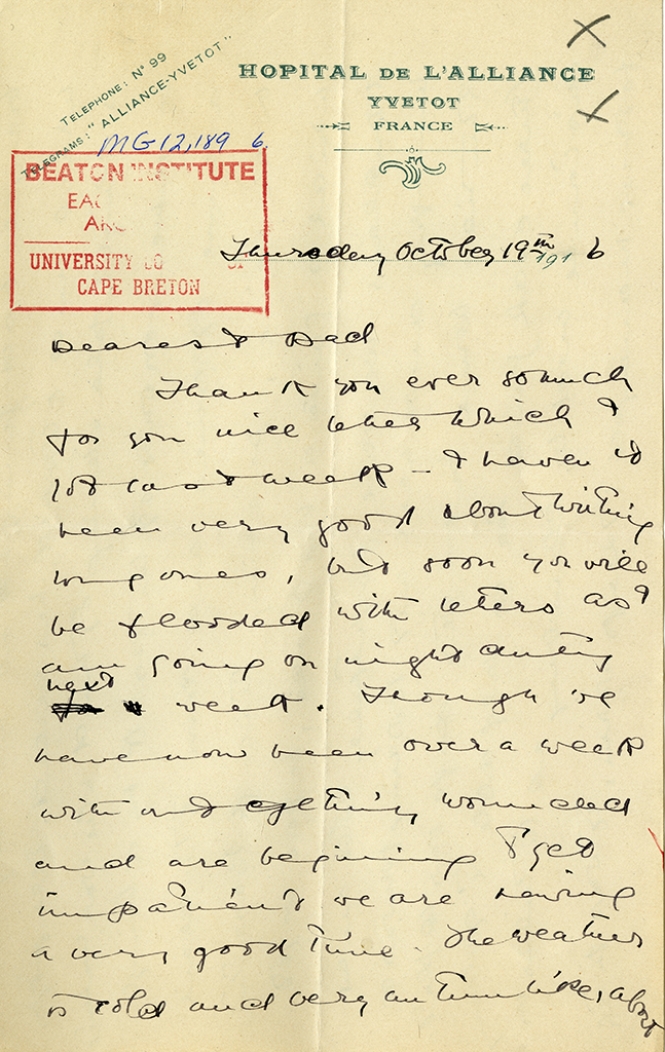 TELEPHONE: Nº 99
TELEGRAMS: "ALLIANCE-YVETOT"
HOPITAL DE L'ALLIANCE
YVETOT
FRANCE
MG 12,189 6.
BEATON INSTITUTE
UNIVERSITY
CAPE BRETON
Thursday October 19th 1916
Dearest Dad
Thank you ever so much
for you nice letter which I
got last week - I haven't
been very good about writing
long ones, but soon you will
be flooded with letters as I
am going on night duty
next week. Though we
have now been over a week
without getting wounded
and are begining to get
impatient we are having
a very good time. The weather
is cold and very autumn like, about